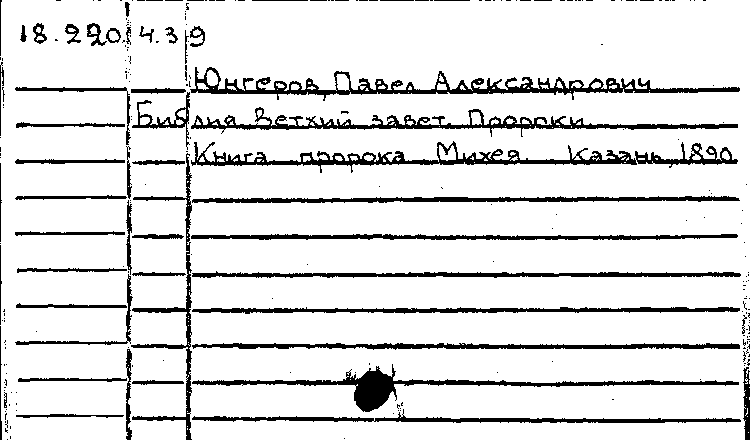 18.220.4.39
Юнгеров, Павел Александрович
Библия. Ветхий завет. Пророки.
Книга пророка Михея. Казань, 1890